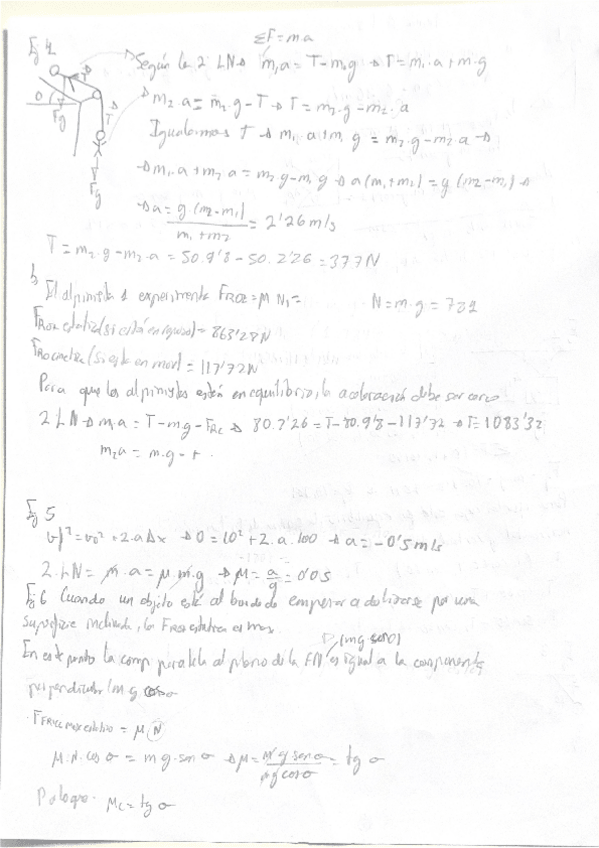 ΣF=m.a
Ej 4
Según la 2 LN → m₁a = T - m₁g → T = m₁.a + m.g
→ m₂.a = m₂.g - T → T = m₂.g - m₂.a
Igualamos T → m₁.a + m₁ g = m₂.g - m₂.a →
→ m₁.a + m₂ a = m₂ g - m₁ g → a(m₁+m₂) = g (m₂-m₁) →
→ a = g (m₂-m₁) / m₁+m₂ = 2'26 m/s
T
T
Fg
Fg
T = m₂.g - m₂.a = 50.9'8 - 50.2'26 = 377N
b) El alpinista 1 experimenta FROZ = μ N₁ = N = m.g =
= 863'28N
= 117'72N
Para que los alpinistas estén en equilibrio, la aceleración debe ser cero
2 LN → m.a = T - mg - FRc → 80.2'26 = T - 80.9'8 - 117'72 → T = 1083'32
m₂a = m.g - t.
Ej 5
vf² = vo² + 2.aΔx → 0 = 10² + 2.a.100 → a = -0'5 m/s
2.LN = m.a = μ.m.g → μ = a/g = 0'05
Ej 6 Cuando un objeto está al borde de empezar a deslizarse por una
superficie inclinada, la es max.
(mg senσ)
En este punto la comp paralela al plano de la FN es igual a la componente
perpendicular mg cos σ
= μ N
μ.N.cos σ = m g.sen σ → μ = m g sen σ / m g cos σ = tg σ
Por lo que μc = tg σ